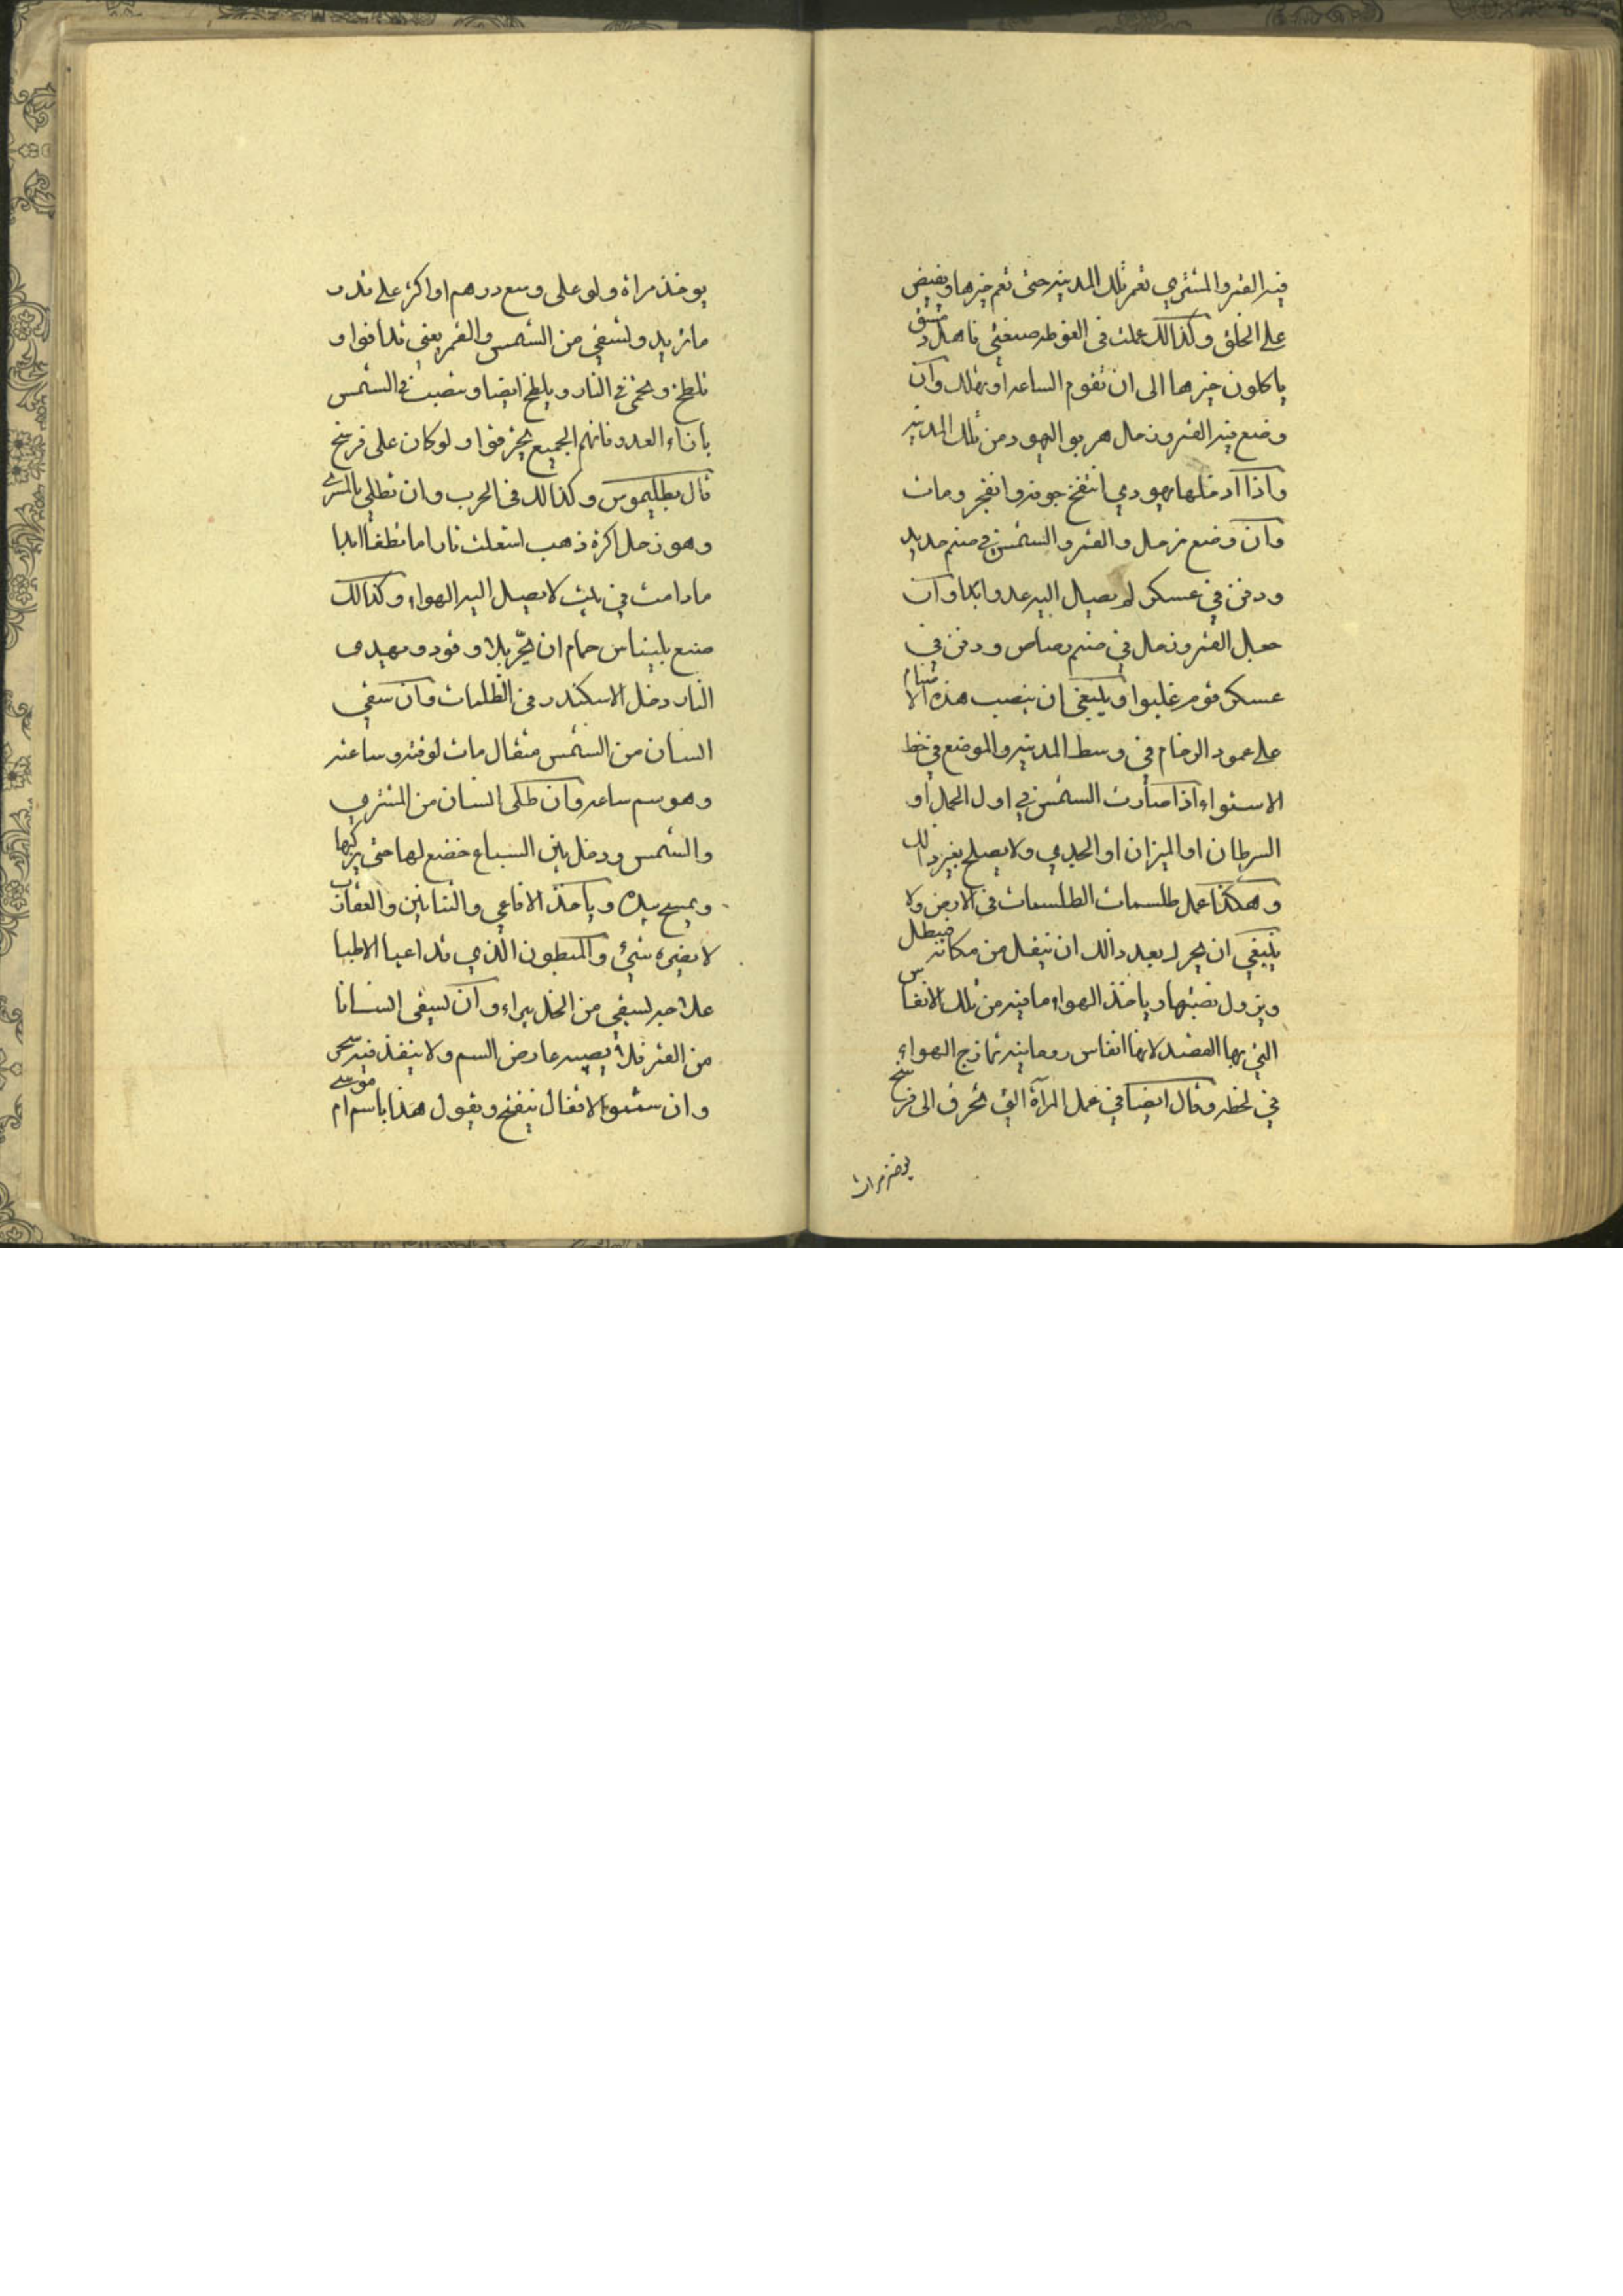 فيه القمر والمشتري تعمر تلك المدينه حتى تعم خيرها ويفيض
على الخلق وكذالك عملت في الغوطه صنعتي فاهل دمشق
ياكلون خيرها الى ان تقوم الساعه او تهلك وان
وضع فيه القمر وزحل هربوا اليهود من تلك المدينه
واذا ادخلها يهودي انتفخ جوفه وانفجر ومات
وان وضع زحل والقمر والشمس في صنم حديد
ودفن في عسكر لم يصل اليه عدو ابدا وان
جعل القمر وزحل في صنم رصاص ودفن في
عسكر قوم غلبوا وينبغي ان ينصب هذه الاصنام
على عمود الرخام في وسط المدينه والموضع في خط
الاستواء اذا صارت الشمس في اول الحمل او
السرطان او الميزان او الجدي ولا يصلح بغير ذالك
وهكذا عمل طلسمات الطلسمات في الارض ولا
ينبغي ان يحرك بعد ذالك ان ينقل من مكانه فيبطل
ويزول نصبتها وياخذ الهواء ما فيه من تلك الانفاس
التي بها القصد لانها انفاس روحانيه تمازج الهواء
في لحظه وقال ايضا في عمل المرآة التي تحرق الى فرسخ
يوخذ مرات
يوخذ مراة ولو على وسع درهم او اكثر على قدر
ما تريد وتسقي من الشمس والقمر يعني
تلطخ وتحمى في النار ويلطخ ايضا وينصب في الشمس
بازاء العدو فانهم الجميع يحرقوا ولو كان على فرسخ
قال بطليموس وكذالك في الحرب وان تطلي بالمشتري
وهو زحل اكرة ذهب اشتعلت نارا ما تطفأ ابدا
ما دامت في بيت لا يصل اليه الهواء وكذالك
صنع بليناس حمام ان يحر بلا وقود وبهيدى
النار دخل الاسكندر في الظلمات وان سقي
انسان من الشمس مثقال مات لوقته وساعته
وهو سم ساعه وان طلى انسان من المشتري
والشمس ودخل بين السباع خضع لها حتى يركبها
ويمسح بيده وياخذ الافاعي والثنابين والعقارب
لا يضره شيئ والمبطون الذي قد اعيا الاطبا
علاجه يسقي من الخل يبراء وان يسقى انسانا
من القمر فلا يصيبه عارض السم ولا ينفذ فيه سحر
وان الاقفال ينفتح ويقول هذا باسم ام موسى